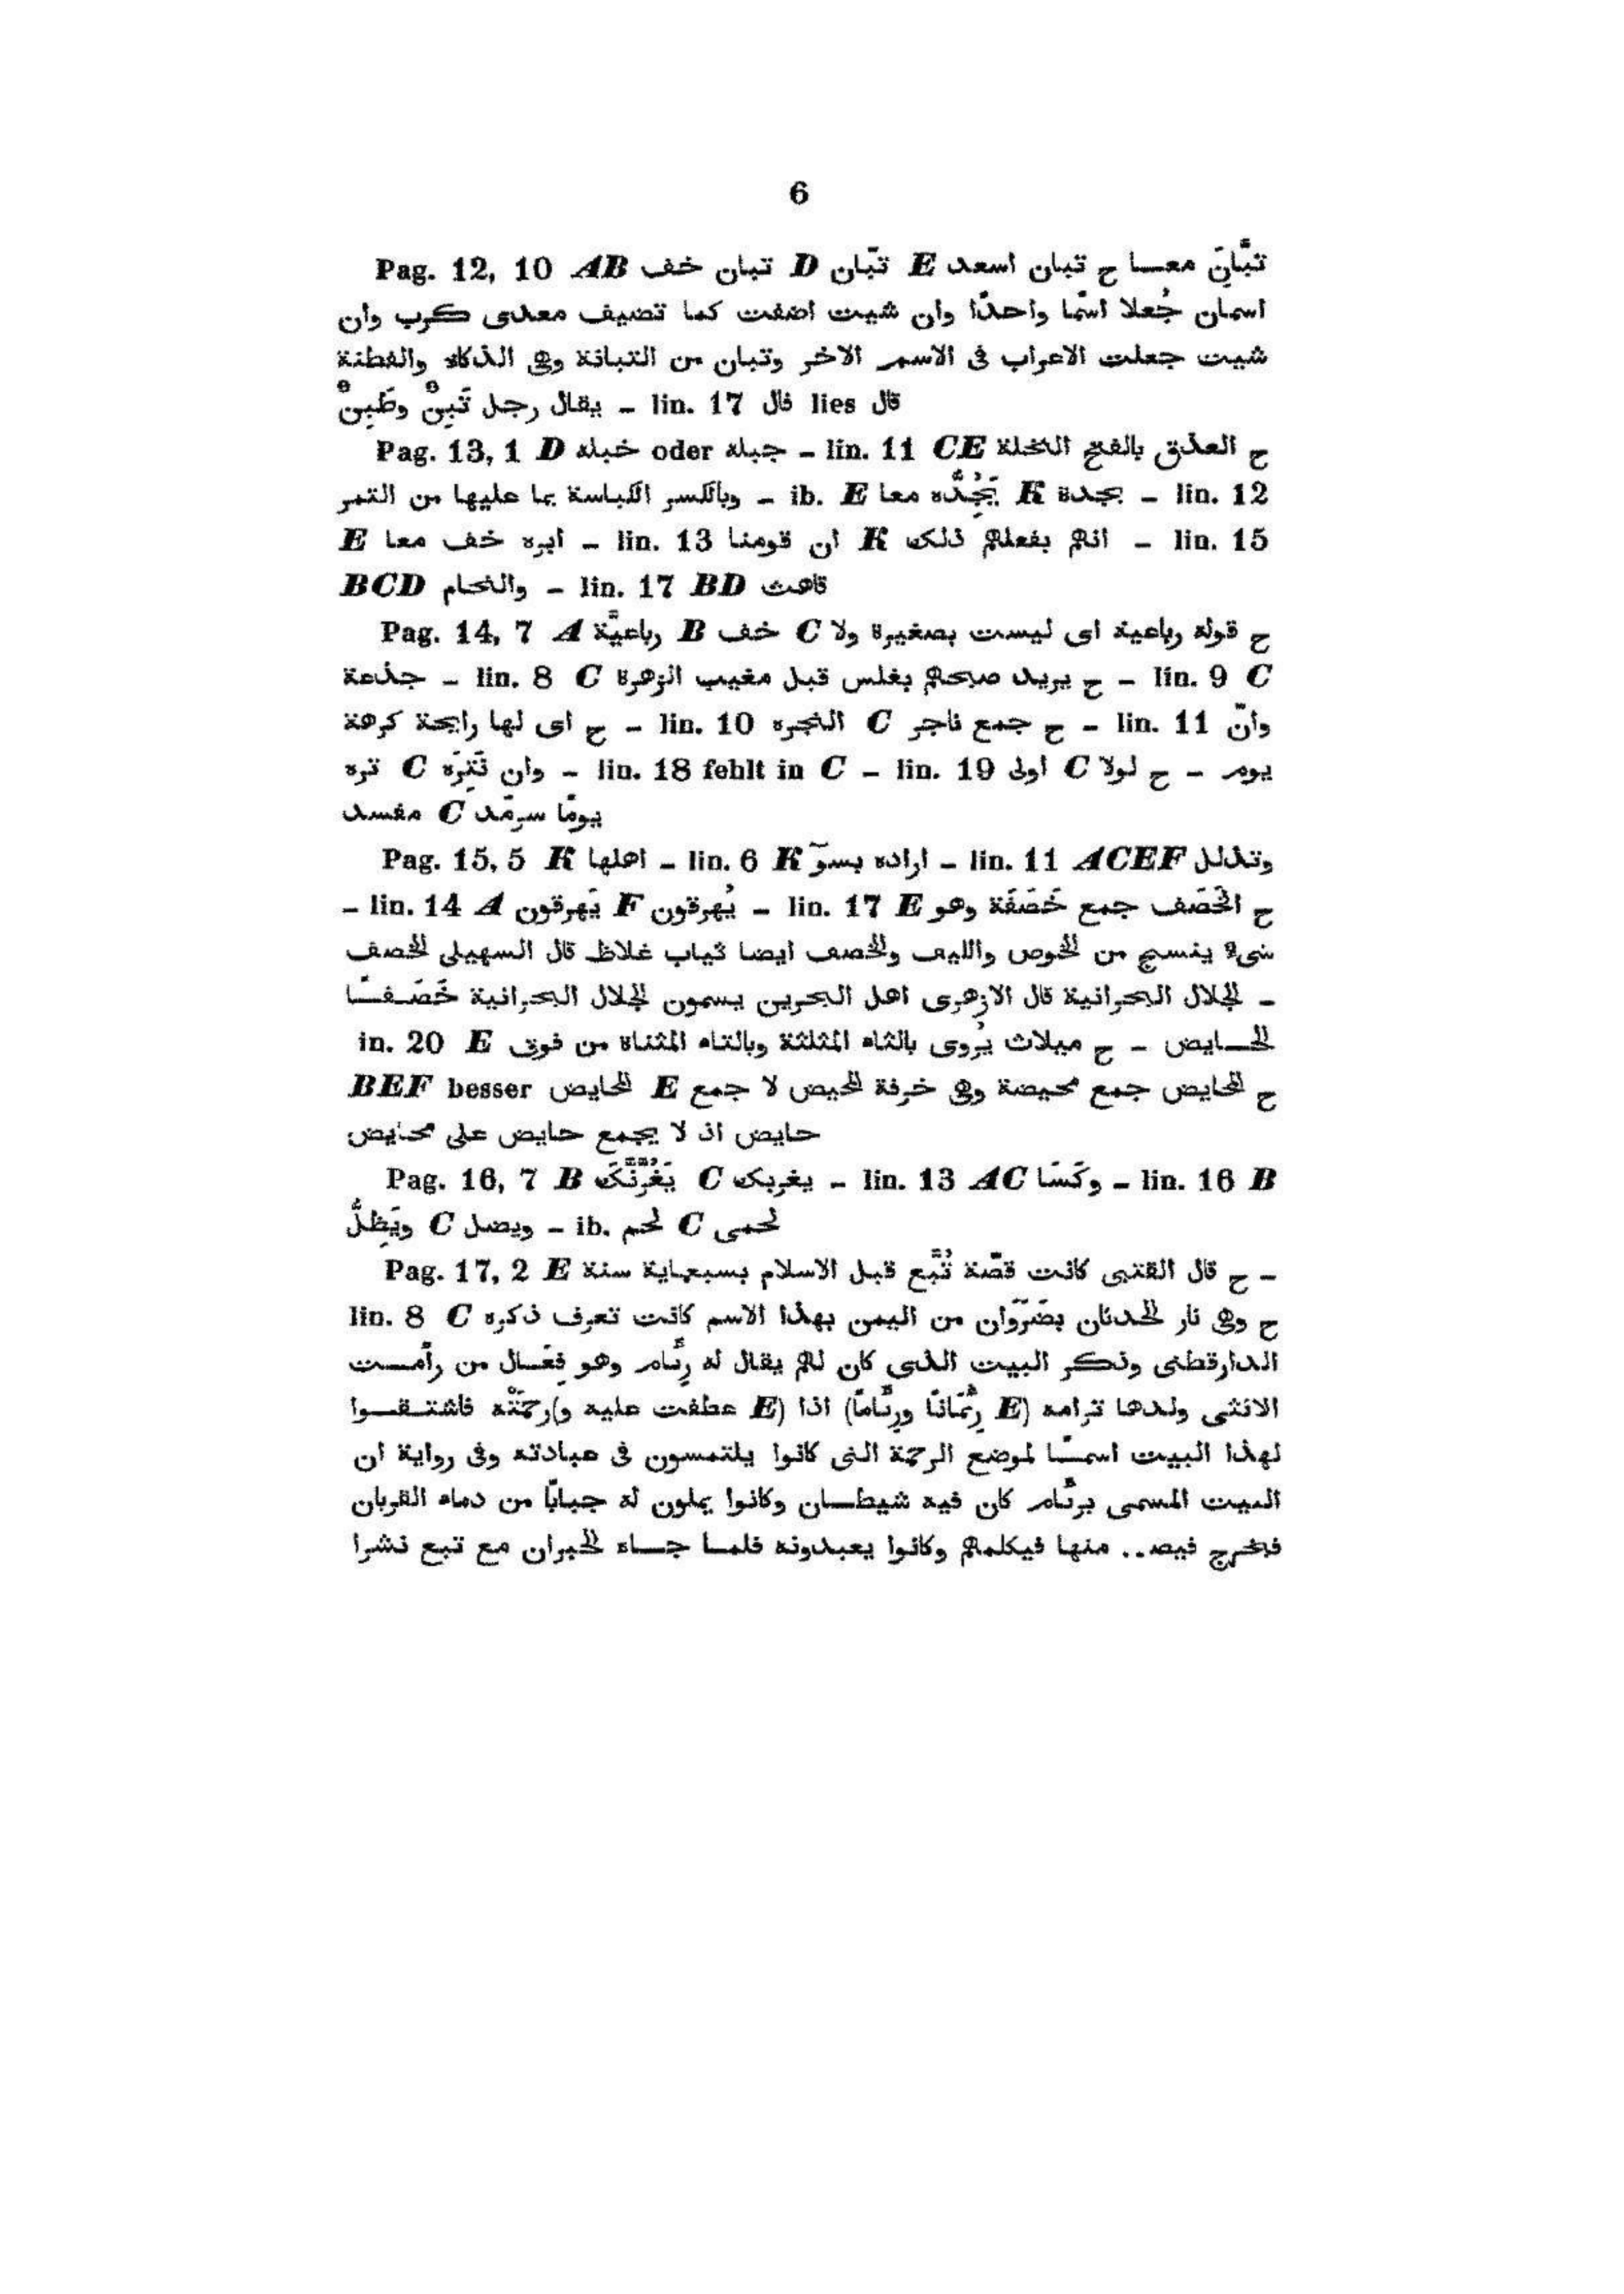 6
Pag. 12, 10 AB تبان خف D تبّان E تبان اسعد ح تبَّانِ معــا
اسمان جُعلا اسمًا واحدًا وان شيت اضفت كما تضيف معدى كرب وان
شيت جعلت الاعراب فى الاسم الاخر وتبان من التبانة وهى الذكاء والفطنة
يقال رجل تَبِنٌ وطَبِنٌ – lin. 17 فال lies قال
Pag. 13, 1 D خبله oder جبله – lin. 11 CE ح العذق بالفتح النخلة
وبالكسر الكباسة بما عليها من التمر – ib. E يَجُِدُّه معا K بجدة – lin. 12
E ابره خف معا – lin. 13 ان قومنا K انهم بفعلهم ذلك – lin. 15
BCD والنحام – lin. 17 BD قاهث
Pag. 14, 7 A رباعيَّة B خف C ح قوله رباعية اى ليست بصغيرة ولا
جذعة – lin. 8 C ح يريد صبحهم بغلس قبل مغيب الزهرة – lin. 9 C
ح اى لها رايحة كرهة – lin. 10 النجره C ح جمع ناجر – lin. 11 وانّ
تره C وان تَتِرَه – lin. 18 fehlt in C – lin. 19 اولى C ح لولا – يوم
مفسد C يومًا سرمَد
Pag. 15, 5 K اهلها – lin. 6 K اراده بسوٓ – lin. 11 ACEF وتذلل
– lin. 14 A يَهرقون F يُهرقون – lin. 17 E ح الخَصَف جمع خَصَفَة وهو
شىء ينسج من الخوص والليف والخصف ايضا ثياب غلاظ قال السهيلى الخصف
الجلال البحرانية قال الازهرى اهل البحرين يسمون الجلال البحرانية خَصَـفـًـا –
in. 20 E ح ميلاث يُروى بالثاء المثلثة وبالتاء المثناة من فوق – الحـــايض
BEF besser المحايض E ح المحايض جمع محيضة وهى خرقة المحيض لا جمع
حايض اذ لا يجمع حايض على محايض
Pag. 16, 7 B يَغُرَّنَّكَ C يغربك – lin. 13 AC وكَسَا – lin. 16 B
ويَظِلُّ C ويصل – ib. لحم C لحمى
Pag. 17, 2 E ح قال القتبى كانت قصّة تُبَّع قبل الاسلام بسبعماية سنة –
lin. 8 C ح وهى نار الحدثان بضَرَوان من اليمن بهذا الاسم كانت تعرف ذكره
الدارقطنى وذكر البيت الذى كان لهم يقال له رِئَام وهو فِعَــال من رأمــت
الانثى ولدها ترامه (E رِئْمَانًا ورِئَامًا) اذا (E عطفت عليه و)رحمَتْه فاشتــقــوا
لهذا البيت اسمــًـا لموضع الرحمة التى كانوا يلتمسون فى عبادته وفى رواية ان
البيت المسمى برئام كان فيه شيطــان وكانوا يملون له جبابًا من دماء القربان
فيخرج فيصـ.. منها فيكلمهم وكانوا يعبدونه فلمــا جــاء الحبران مع تبع نشرا